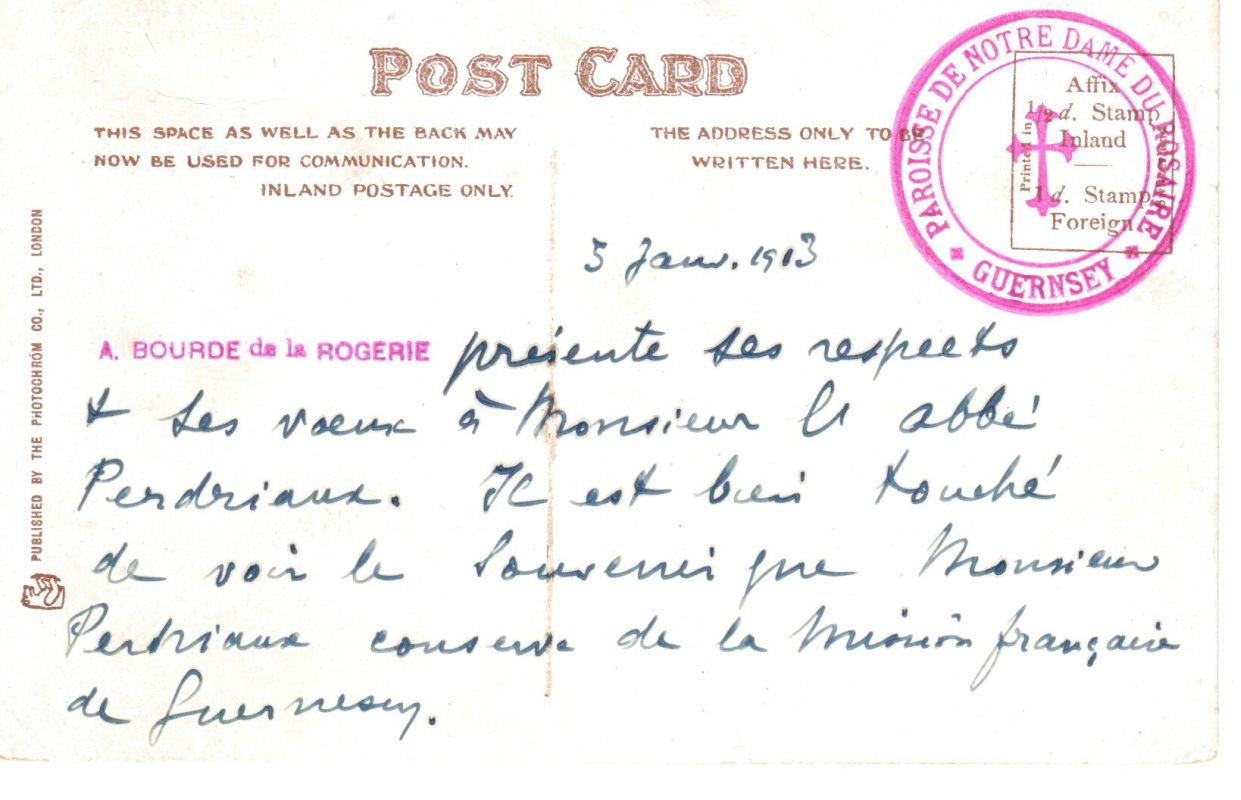 POST CARD
THIS SPACE AS WELL AS THE BACK MAY
NOW BE USED FOR COMMUNICATION.
INLAND POSTAGE ONLY.
THE ADDRESS ONLY TO BE
WRITTEN HERE.
PAROISSE DE NOTRE DAME DU ROSAIRE
GUERNSEY
Affix
½d. Stamp
Inland
1d. Stamp
Foreign
Printed in
PUBLISHED BY THE PHOTOCHROM CO., LTD., LONDON
5 Janv. 1913
A. BOURDE de la ROGERIE présente ses respects
& ses vœux à Monsieur l'abbé
Perdriaux. Il est bien touché
de voir le souvenir que Monsieur
Perdriaux conserve de la Mission française
de Guernesey.